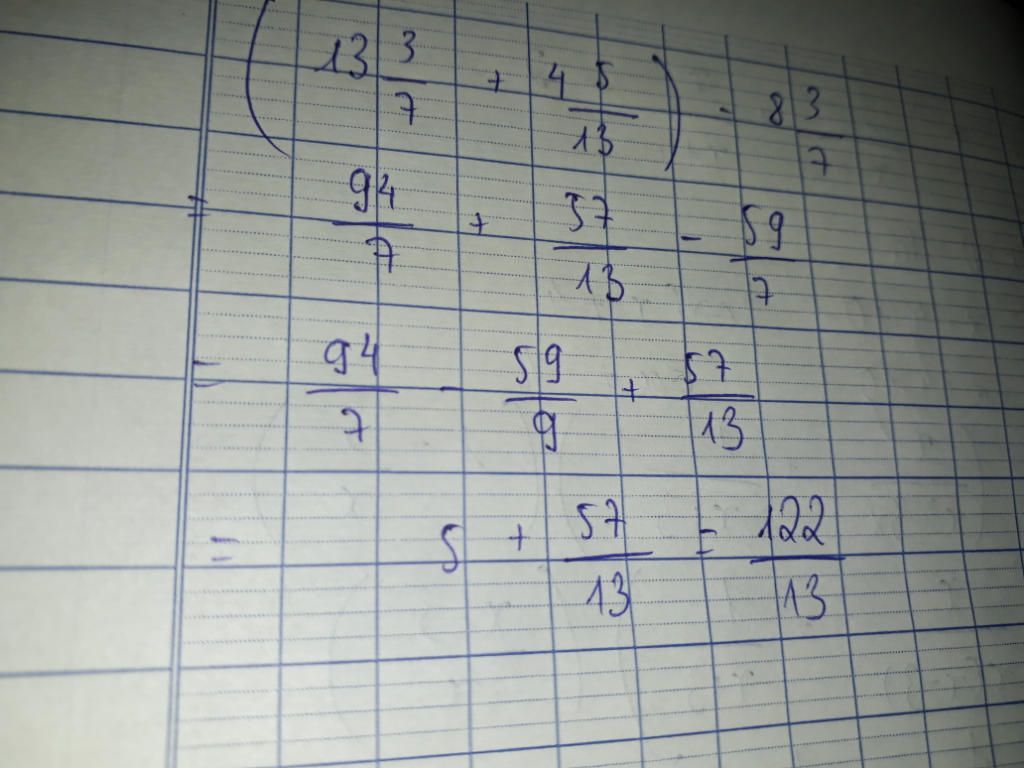 ( 13 3/7 + 4 5/13 ) - 8 3/7
= 94/7 + 57/13 - 59/7
= 94/7 - 59/9 + 57/13
= 5 + 57/13 = 122/13